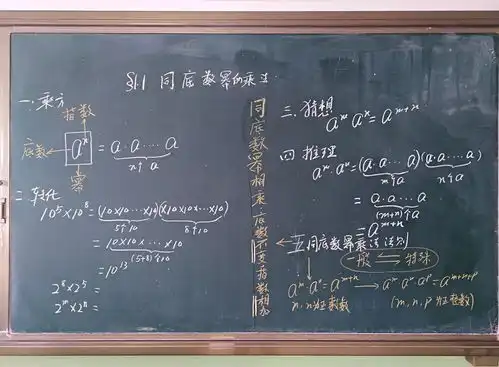 §1.1 同底数幂的乘法
一.乘方
指数
底数 ← aⁿ = a·a·…·a
n个a
幂
二.转化
10⁵×10⁸=(10×10×…×10)(×10×…×10)
5个10 8个10
=10×10×…×10
(5+8)个10
=10¹³
2⁸×2⁵=
2ᵐ×2ⁿ=
同底数幂相乘 底数不变指数相加
三.猜想
aᵐ·aⁿ=aᵐ⁺ⁿ
四 推理
aᵐ·aⁿ=(a·a…a)(a·a…a)
m个a n个a
=a·a…a
(m+n)个a
=aᵐ⁺ⁿ
五 同底数幂乘法法则
一般 ⇌ 特殊
aᵐ·aⁿ=aᵐ⁺ⁿ → aᵐ·aⁿ·aᵖ=aᵐ⁺ⁿ⁺ᵖ
m,n为正整数 (m,n,p为正整数)